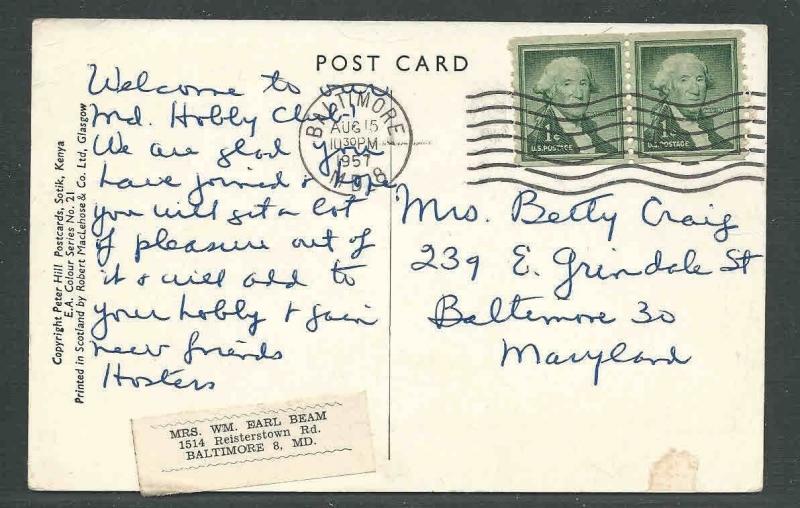 POST CARD
Welcome to our
Md. Hobby Club!
We are glad you
have joined & hope
you will get a lot
of pleasure out of
it & will add to
your hobby & gain
new friends
Hosters
BALTIMORE
AUG 15
10 30 PM
1957
MD. 8
1¢
U.S. POSTAGE
1¢
U.S. POSTAGE
Mrs. Betty Craig
239 E. Grindale St
Baltimore 30
Maryland
Copyright Peter Hill Postcards, Sotik, Kenya
E.A. Colour Series No. 21
Printed in Scotland by Robert MacLehose & Co. Ltd, Glasgow
MRS. WM. EARL BEAM
1514 Reisterstown Rd.
BALTIMORE 8, MD.